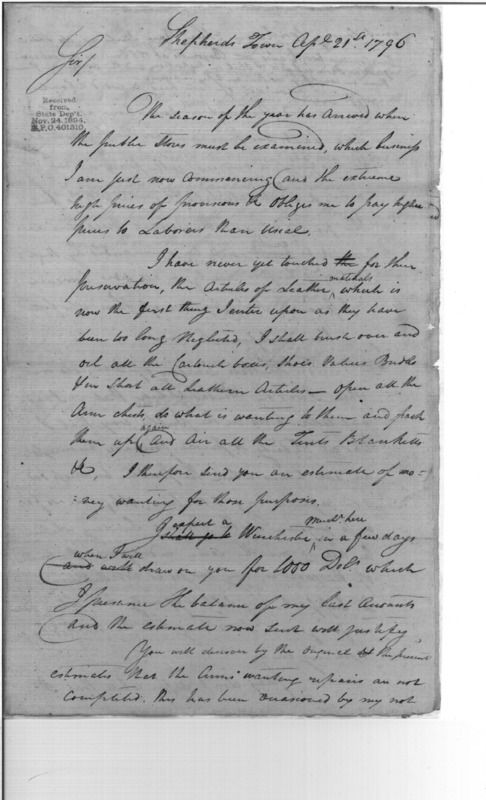 Shepherds Town Apl. 21st. 1796
Sir/
Received
from
State Dep't.
Nov. 24. 1894.
R.P.O. 401310.
The season of the year has Arrived when
the public Stores must be examined, which business
I am just now commencing (and the extreme
high prices of provisions &c obliges me to pay higher
prices to Laborers than Usual.
I have never yet touched the for their
preservation, the Articles of Leather, which is
now the first thing I enter upon as they have
been too long Neglected, I shall brush over and
oil all the Cartouch boxes, Shoes Valises
in Short all Leathern Articles — open all the
Arm chests, do what is wanting to them and pack
them up again (and Air all the Tents Blanketts
&c, I therefore send you an estimate of mo-
:ney wanting for those purposes.
I expect a Winchester here in a few days
when I will
and will draw on you for 1000 Dolls. which
I presume the balance of my last Accounts
(and the estimate now sent will justify,
(You will discover by the original & the present
estimates that the Arms wanting repairs are not
Completed. this has been occasioned by my not